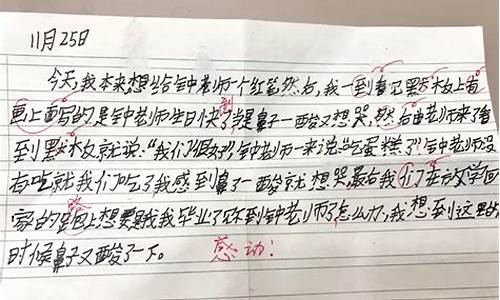 11月25日
今天,我本来想给钟老师一个红笔然后,我一到看见黑木板上有
画上面写的是钟老师生日快乐当是鼻子一酸又想哭,然后曲老师来了看
到黑木板就说:“我们很好”,钟老师一来说“吃蛋糕了”钟老师没
有吃就我们吃了我感到鼻子一酸就想哭,最后我们在放学回
家的路上想要是我毕业了见不到钟老师了怎么办,我想到这里的
时候鼻子又酸了一下。 感动!